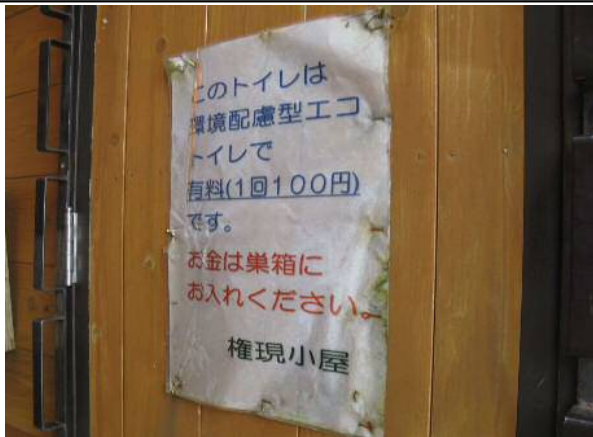 このトイレは
環境配慮型エコ
トイレで
有料(1回100円)
です。
お金は巣箱に
お入れください。
権現小屋